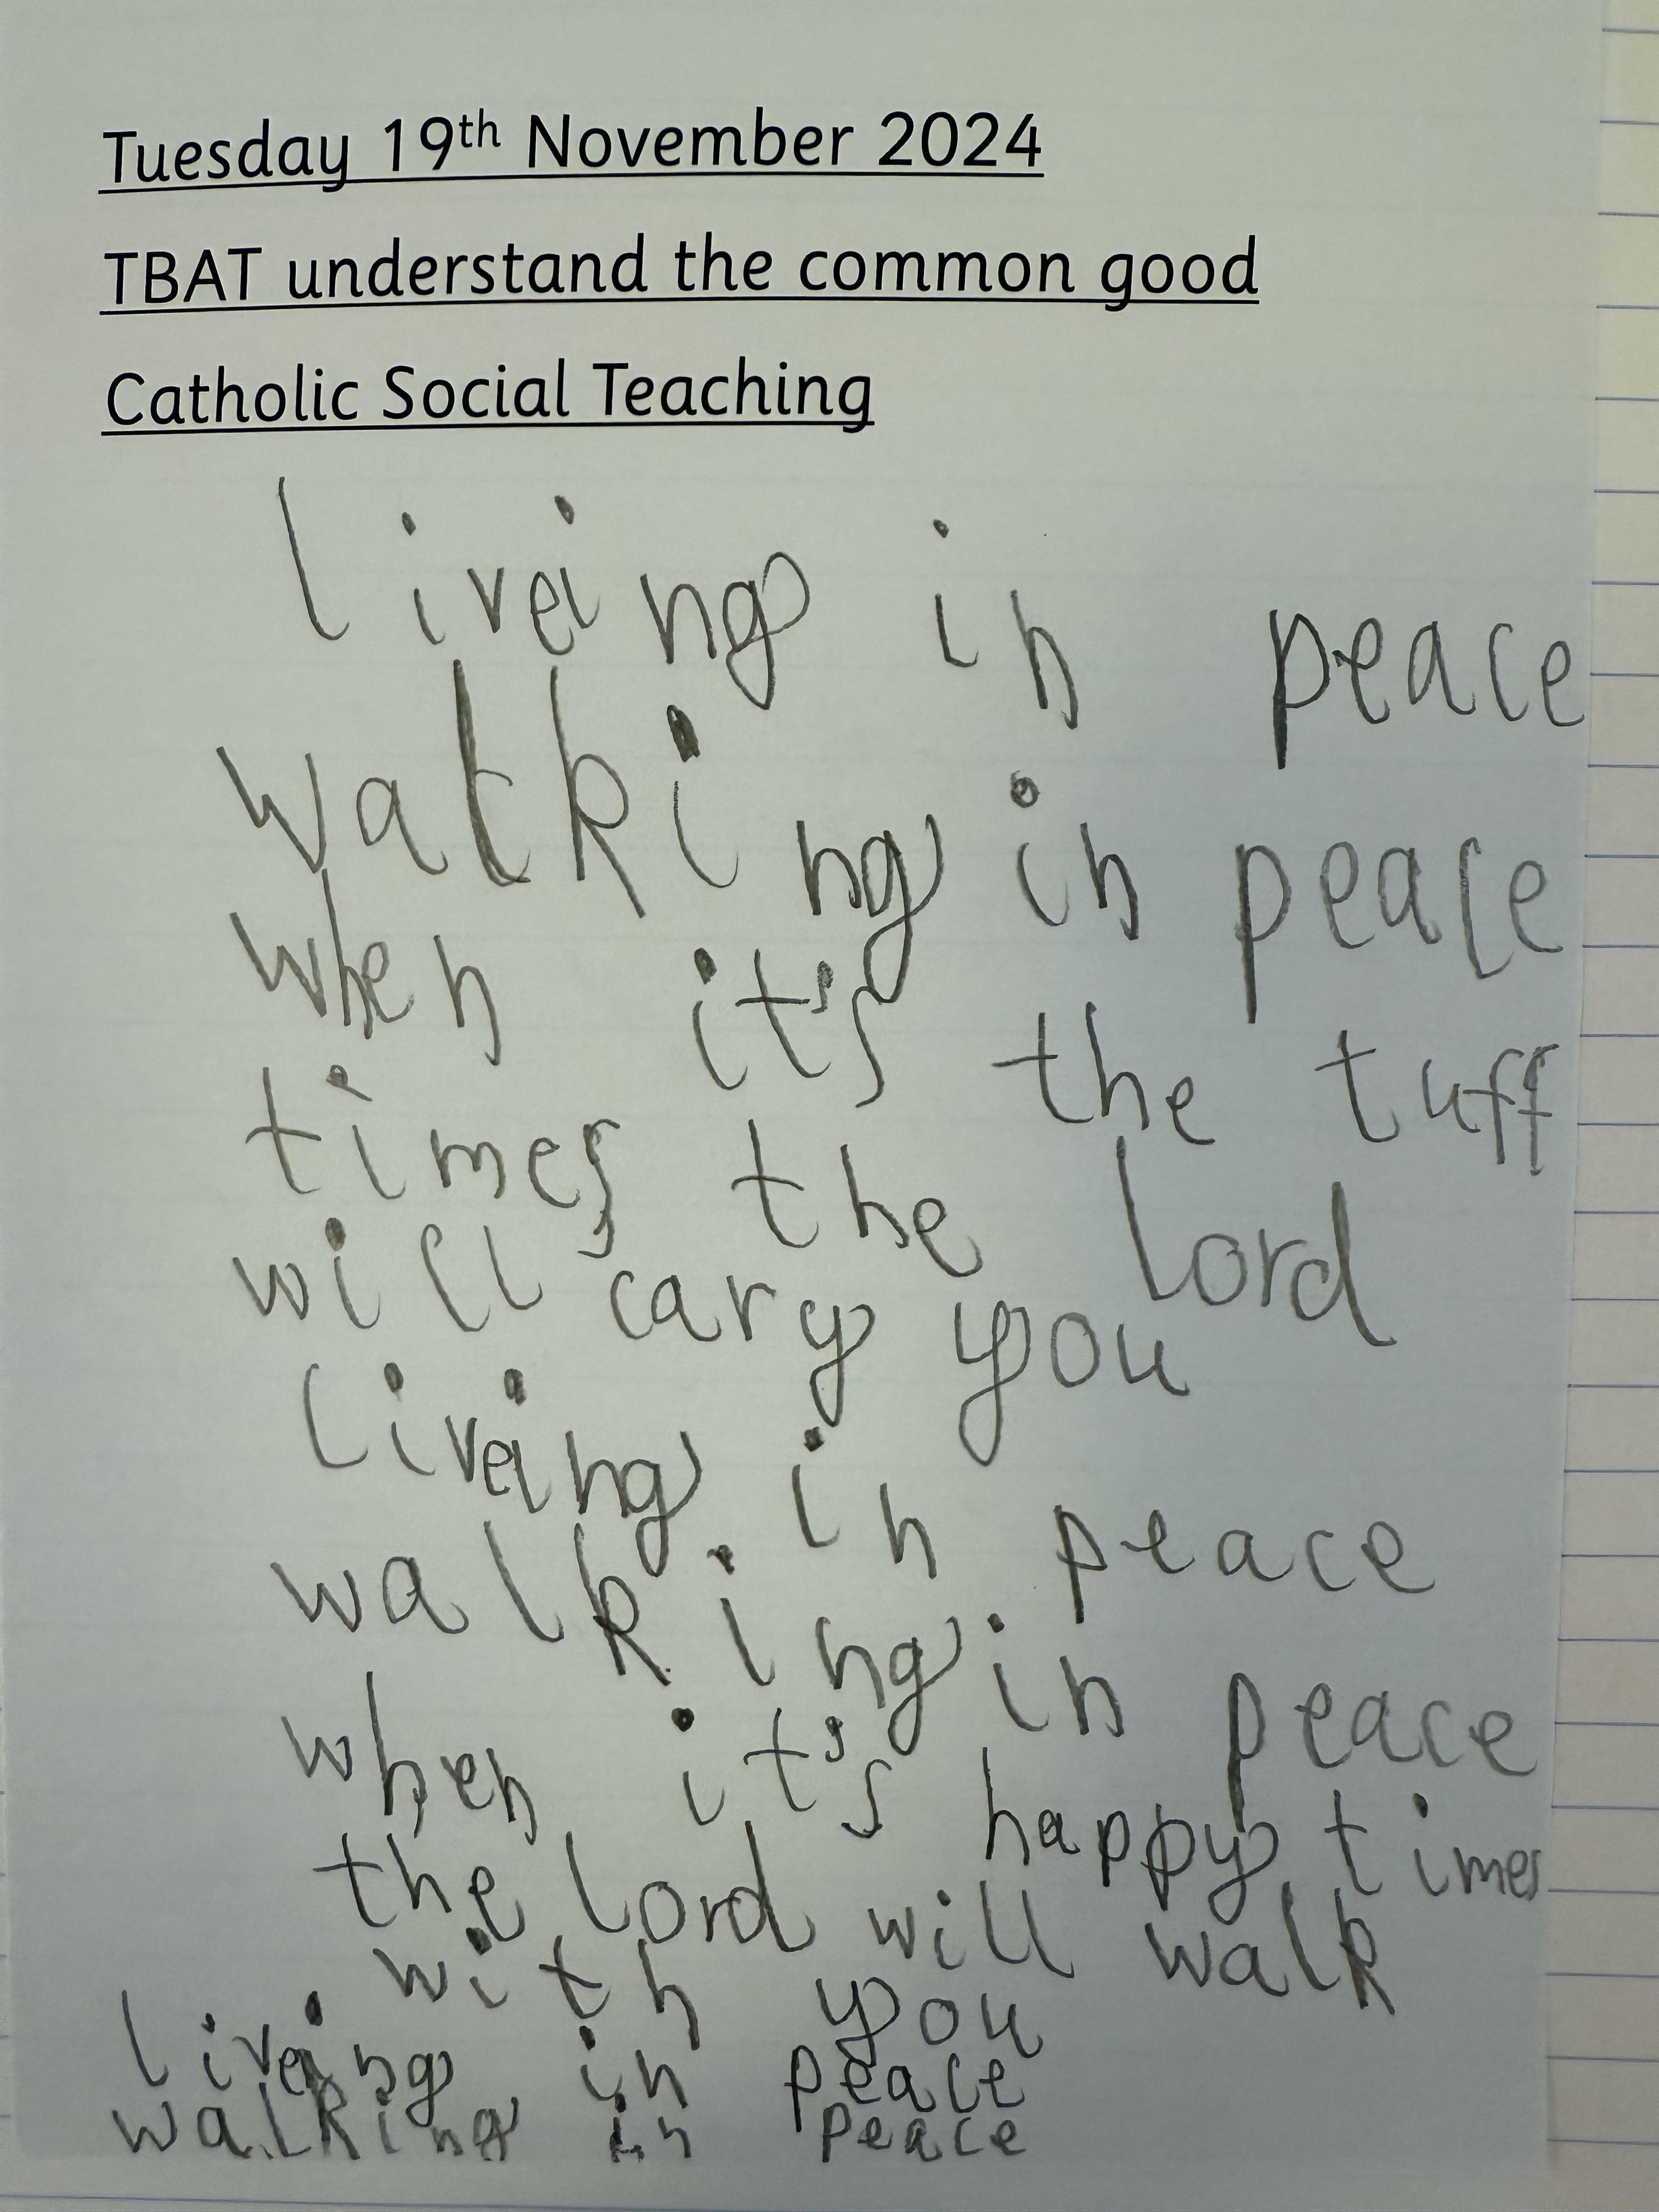 Tuesday 19th November 2024
TBAT understand the common good
Catholic Social Teaching
liveing in peace
walking in peace
when it's the tuff
times the lord
will cary you
liveing in peace
walking in peace
when it's happy times
the lord will walk
with you
liveing in peace
walking in peace